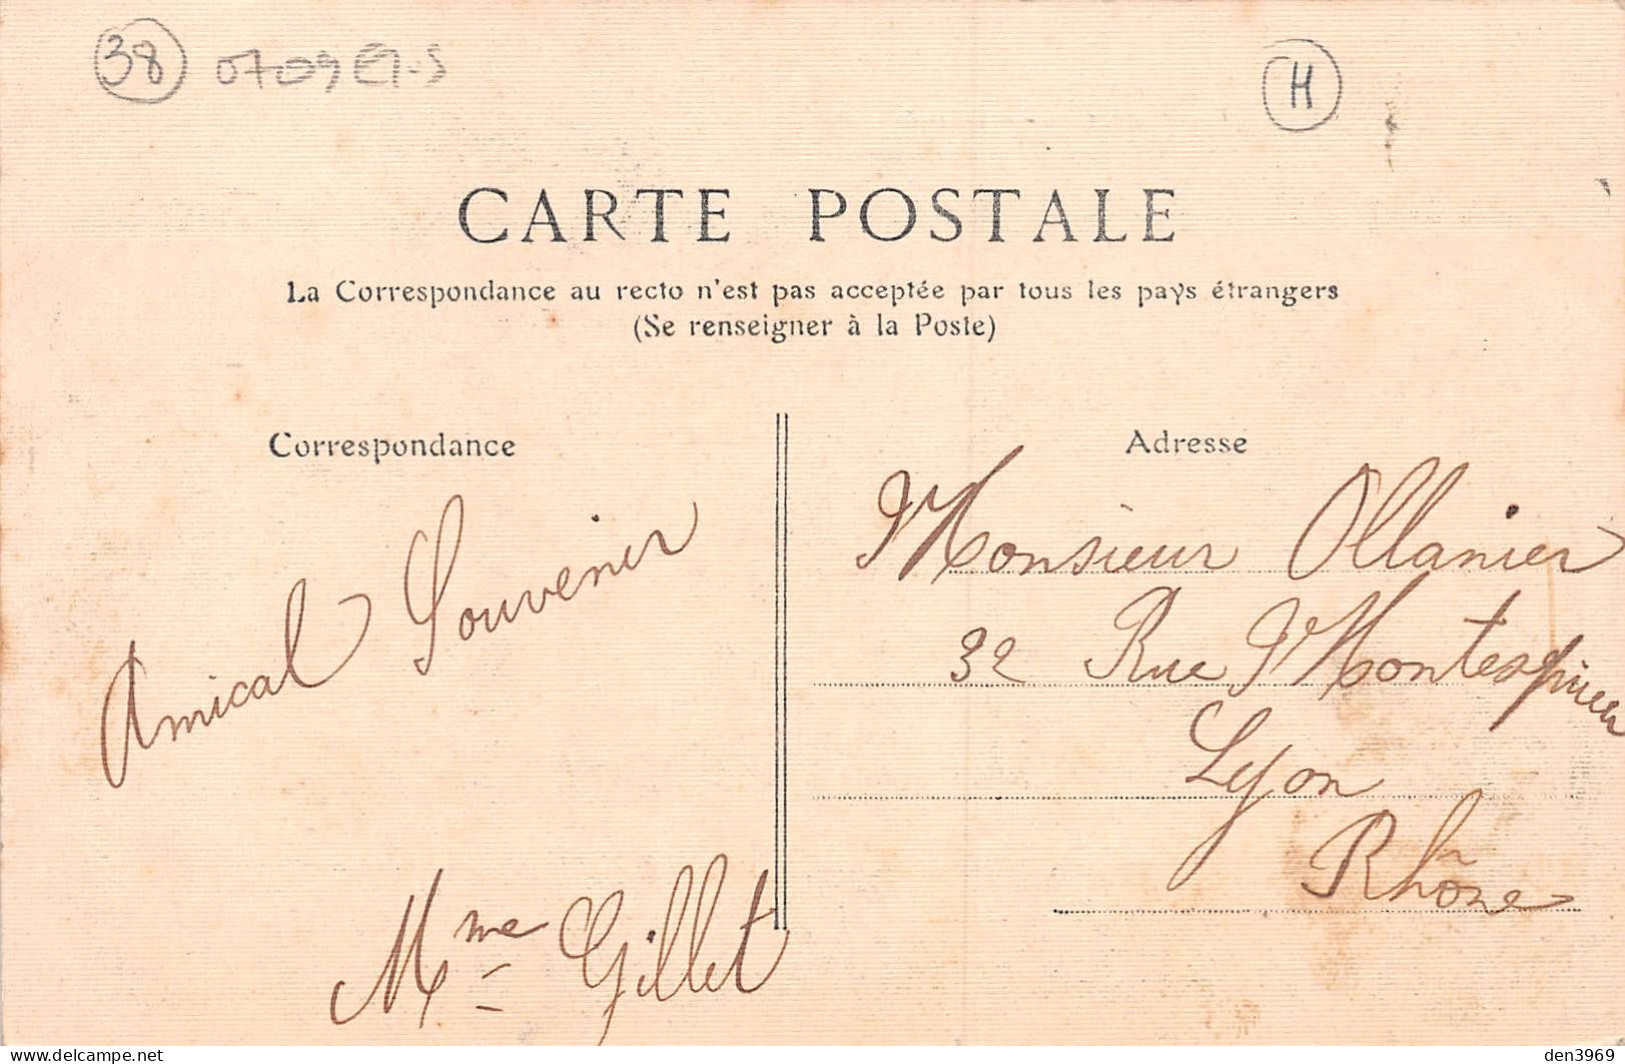 38
H
CARTE POSTALE
La Correspondance au recto n'est pas acceptée par tous les pays étrangers
(Se renseigner à la Poste)
Correspondance
Amical Souvenir
Mme Gillet
Adresse
Monsieur Ollanier
32 Rue Montesquieu
Lyon
Rhône
delcampe.net
den3969